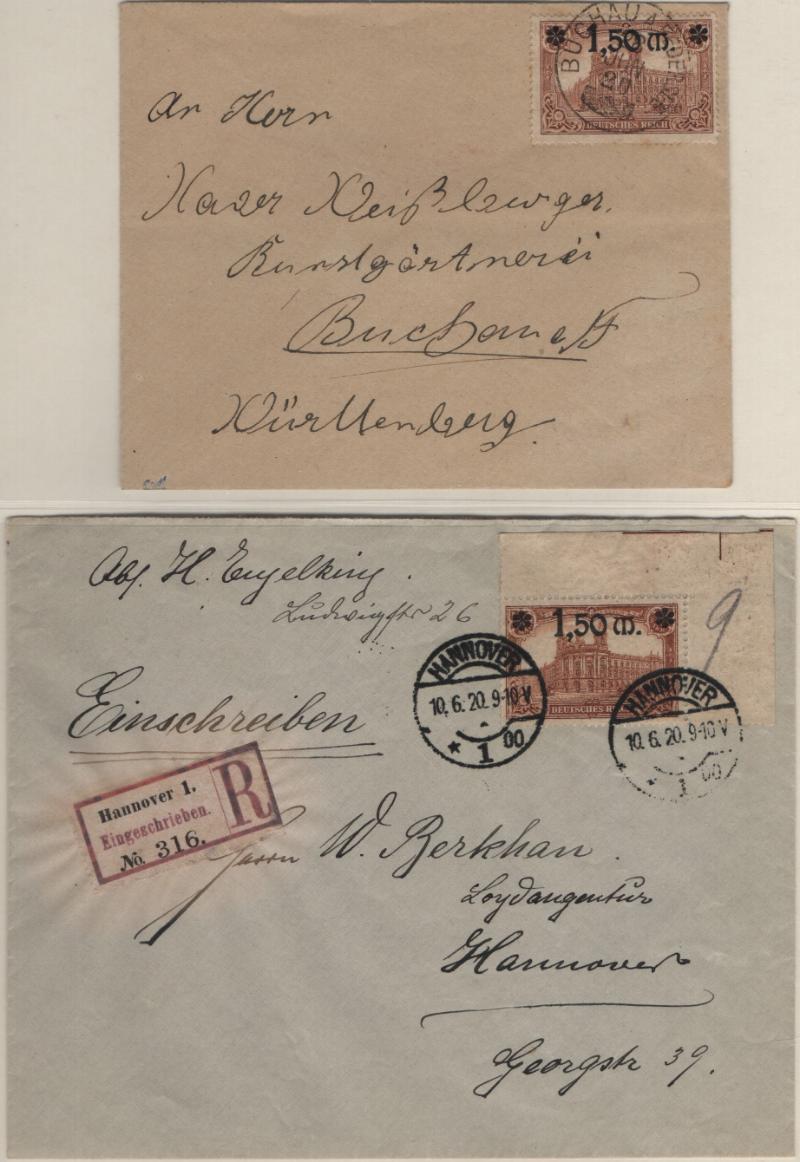 BUCHAU A. FEDERSEE
JUN
20
1,50 M.
DEUTSCHES REICH
An Herrn
Xaver Weißhaupt
Kunstgärtnerei
Buchau a/F
Württemberg.
Abs. H. Engelking.
Ludwigstr 26
1,50 M.
DEUTSCHES REICH
9
HANNOVER
10.6.20. 9-10 V
* 1 00
HANNOVER
10.6.20. 9-10 V
* 1 00
Einschreiben
Hannover 1.
Eingeschrieben.
No. 316.
R
Herrn W. Berkhan.
Loydangentur
Hannover
Georgstr 39.